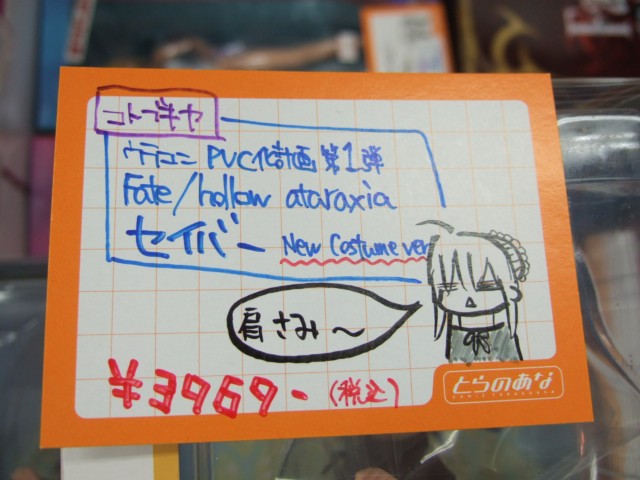 コトブキヤ
ウデコン PVC化計画 第1弾
Fate/hollow ataraxia
セイバー New Costume ver
肩さみ〜
¥3969- (税込)
とらのあな